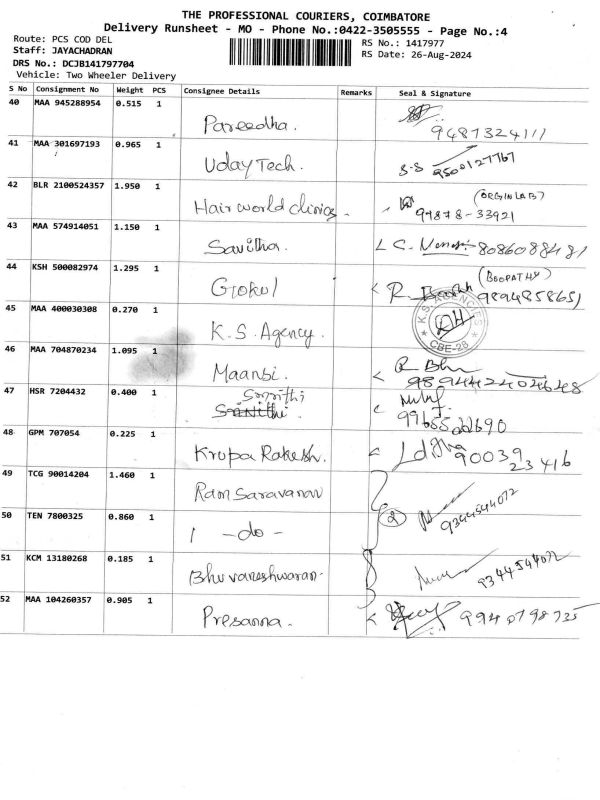 THE PROFESSIONAL COURIERS, COIMBATORE
Delivery Runsheet - MO - Phone No.:0422-3505555 - Page No.:4
Route: PCS COD DEL
RS No.: 1417977
Staff: JAYACHADRAN
RS Date: 26-Aug-2024
DRS No.: DCJB141797704
Vehicle: Two Wheeler Delivery
S No Consignment No Weight PCS Consignee Details Remarks Seal & Signature
40 MAA 945288954 0.515 1
Pareedha.
9487324111
41 MAA 301697193 0.965 1
Uday Tech. S-S 9500127767
42 BLR 2100524357 1.950 1
(ORGIN LAB)
Hair world clinics. 99878-33921
43 MAA 574914051 1.150 1
Savitha. 8086088481
44 KSH 500082974 1.295 1
(BOOPATHY)
Gokul R. 9894858651
45 MAA 400030308 0.270 1
K.S. Agency.
K.S. AGENCIES
CBE-28
46 MAA 704870234 1.095 1
Maansi.
47 HSR 7204432 0.400 1
Srinithi
48 GPM 707054 0.225 1
Krupa Rakesh. 90039
23416
49 TCG 90014204 1.460 1
Ram Saravanan
50 TEN 7800325 0.860 1
2 9344544072
1 -do-
51 KCM 13180268 0.185 1
Bhuvaneshwaran- 9344544072
52 MAA 104260357 0.905 1
Presanna. 9940798735